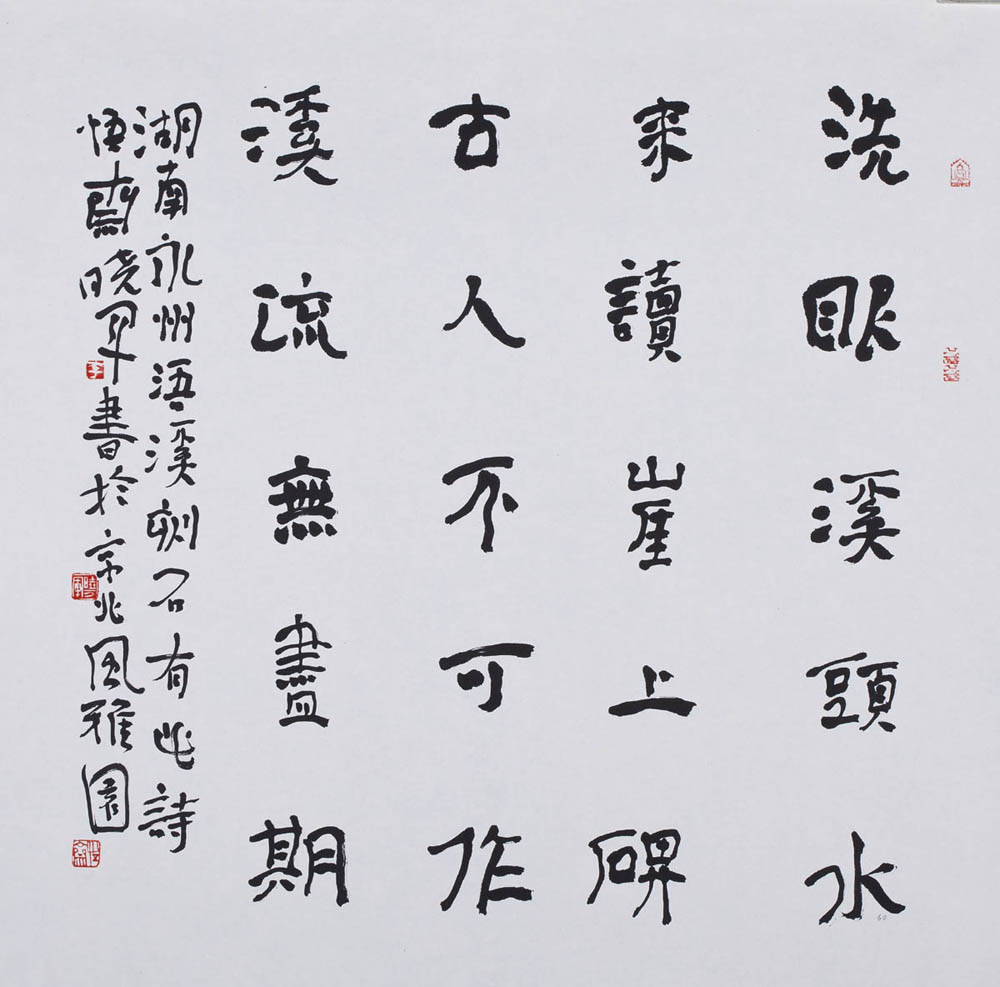 洗眼溪頭水
來讀崖上碑
古人不可作
溪流無盡期
湖南永州浯溪刻石有此詩
悟齋曉軍書於京北風雅園
李